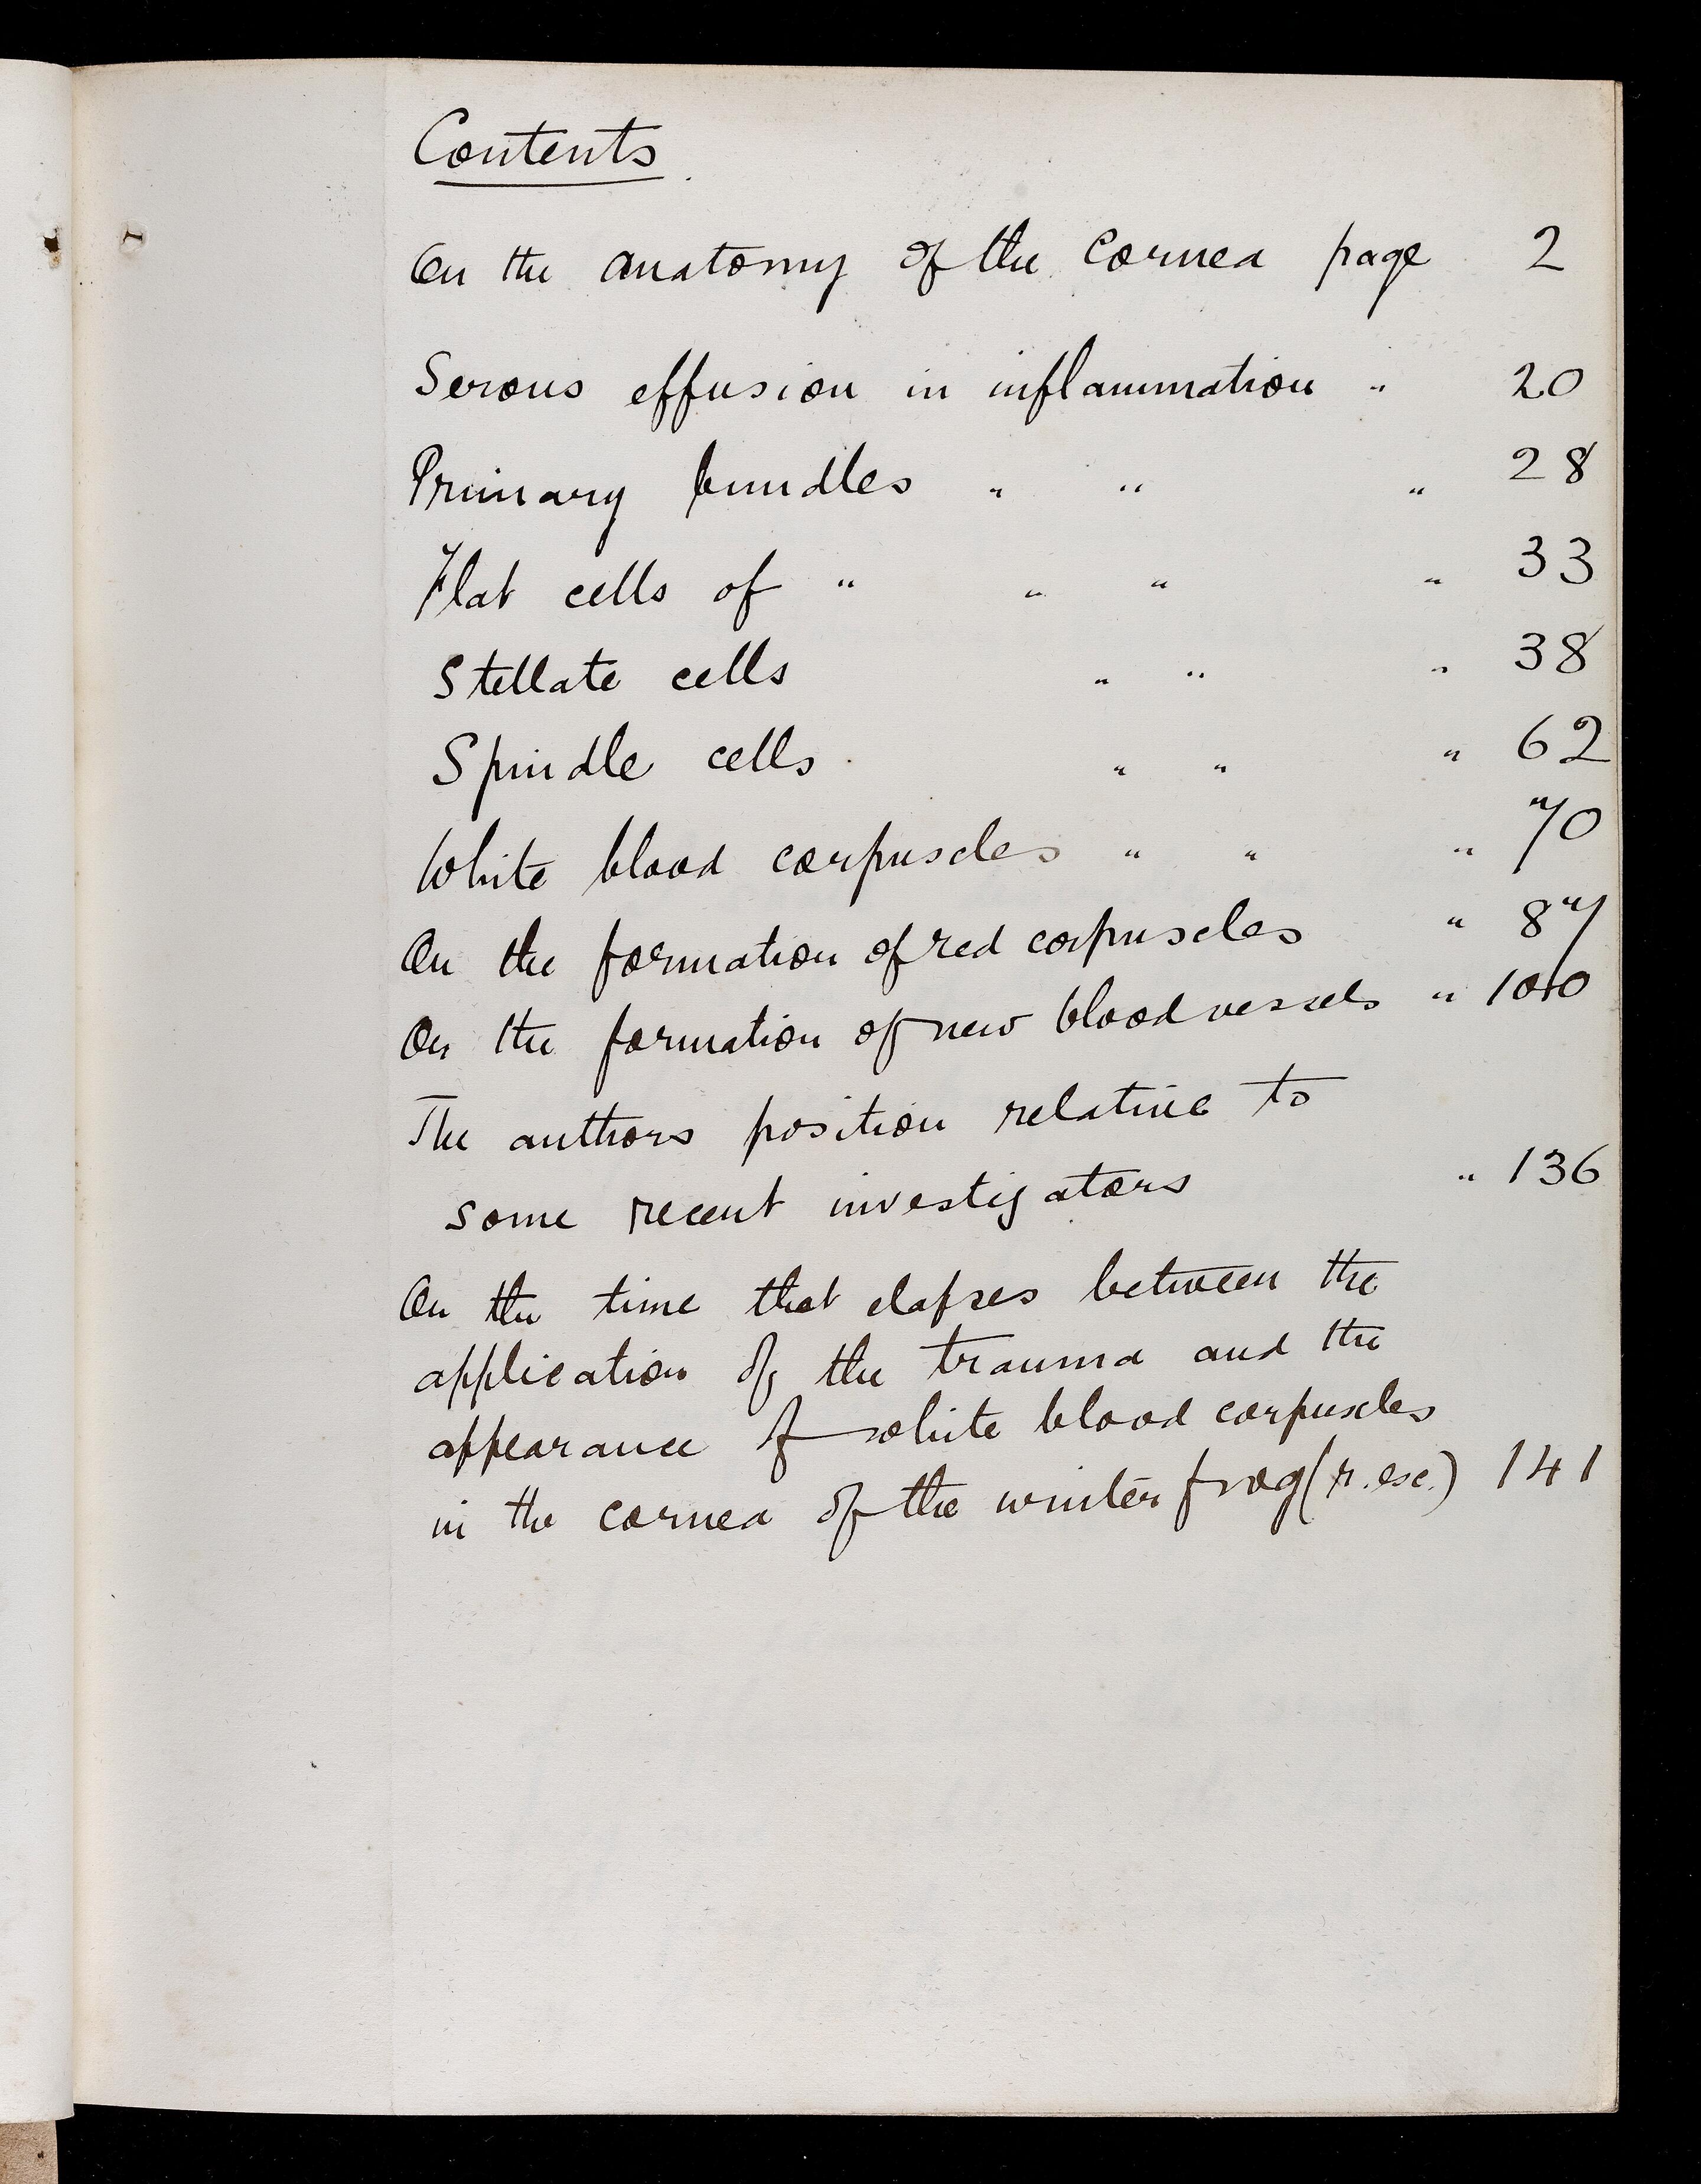 Contents.
On the anatomy of the Cornea page 2
Serous effusion in inflammation " 20
Primary bundles " " " 28
Flat cells of " " " " 33
Stellate cells " " " 38
Spindle cells " " " 62
White blood corpuscles " " " 70
On the formation of red corpuscles " 87
On the formation of new bloodvessels " 100
The authors position relative to
some recent investigators " 136
On the time that elapses between the
application of the trauma and the
appearance of white blood corpuscles
in the cornea of the winter frog (r. esc.) 141